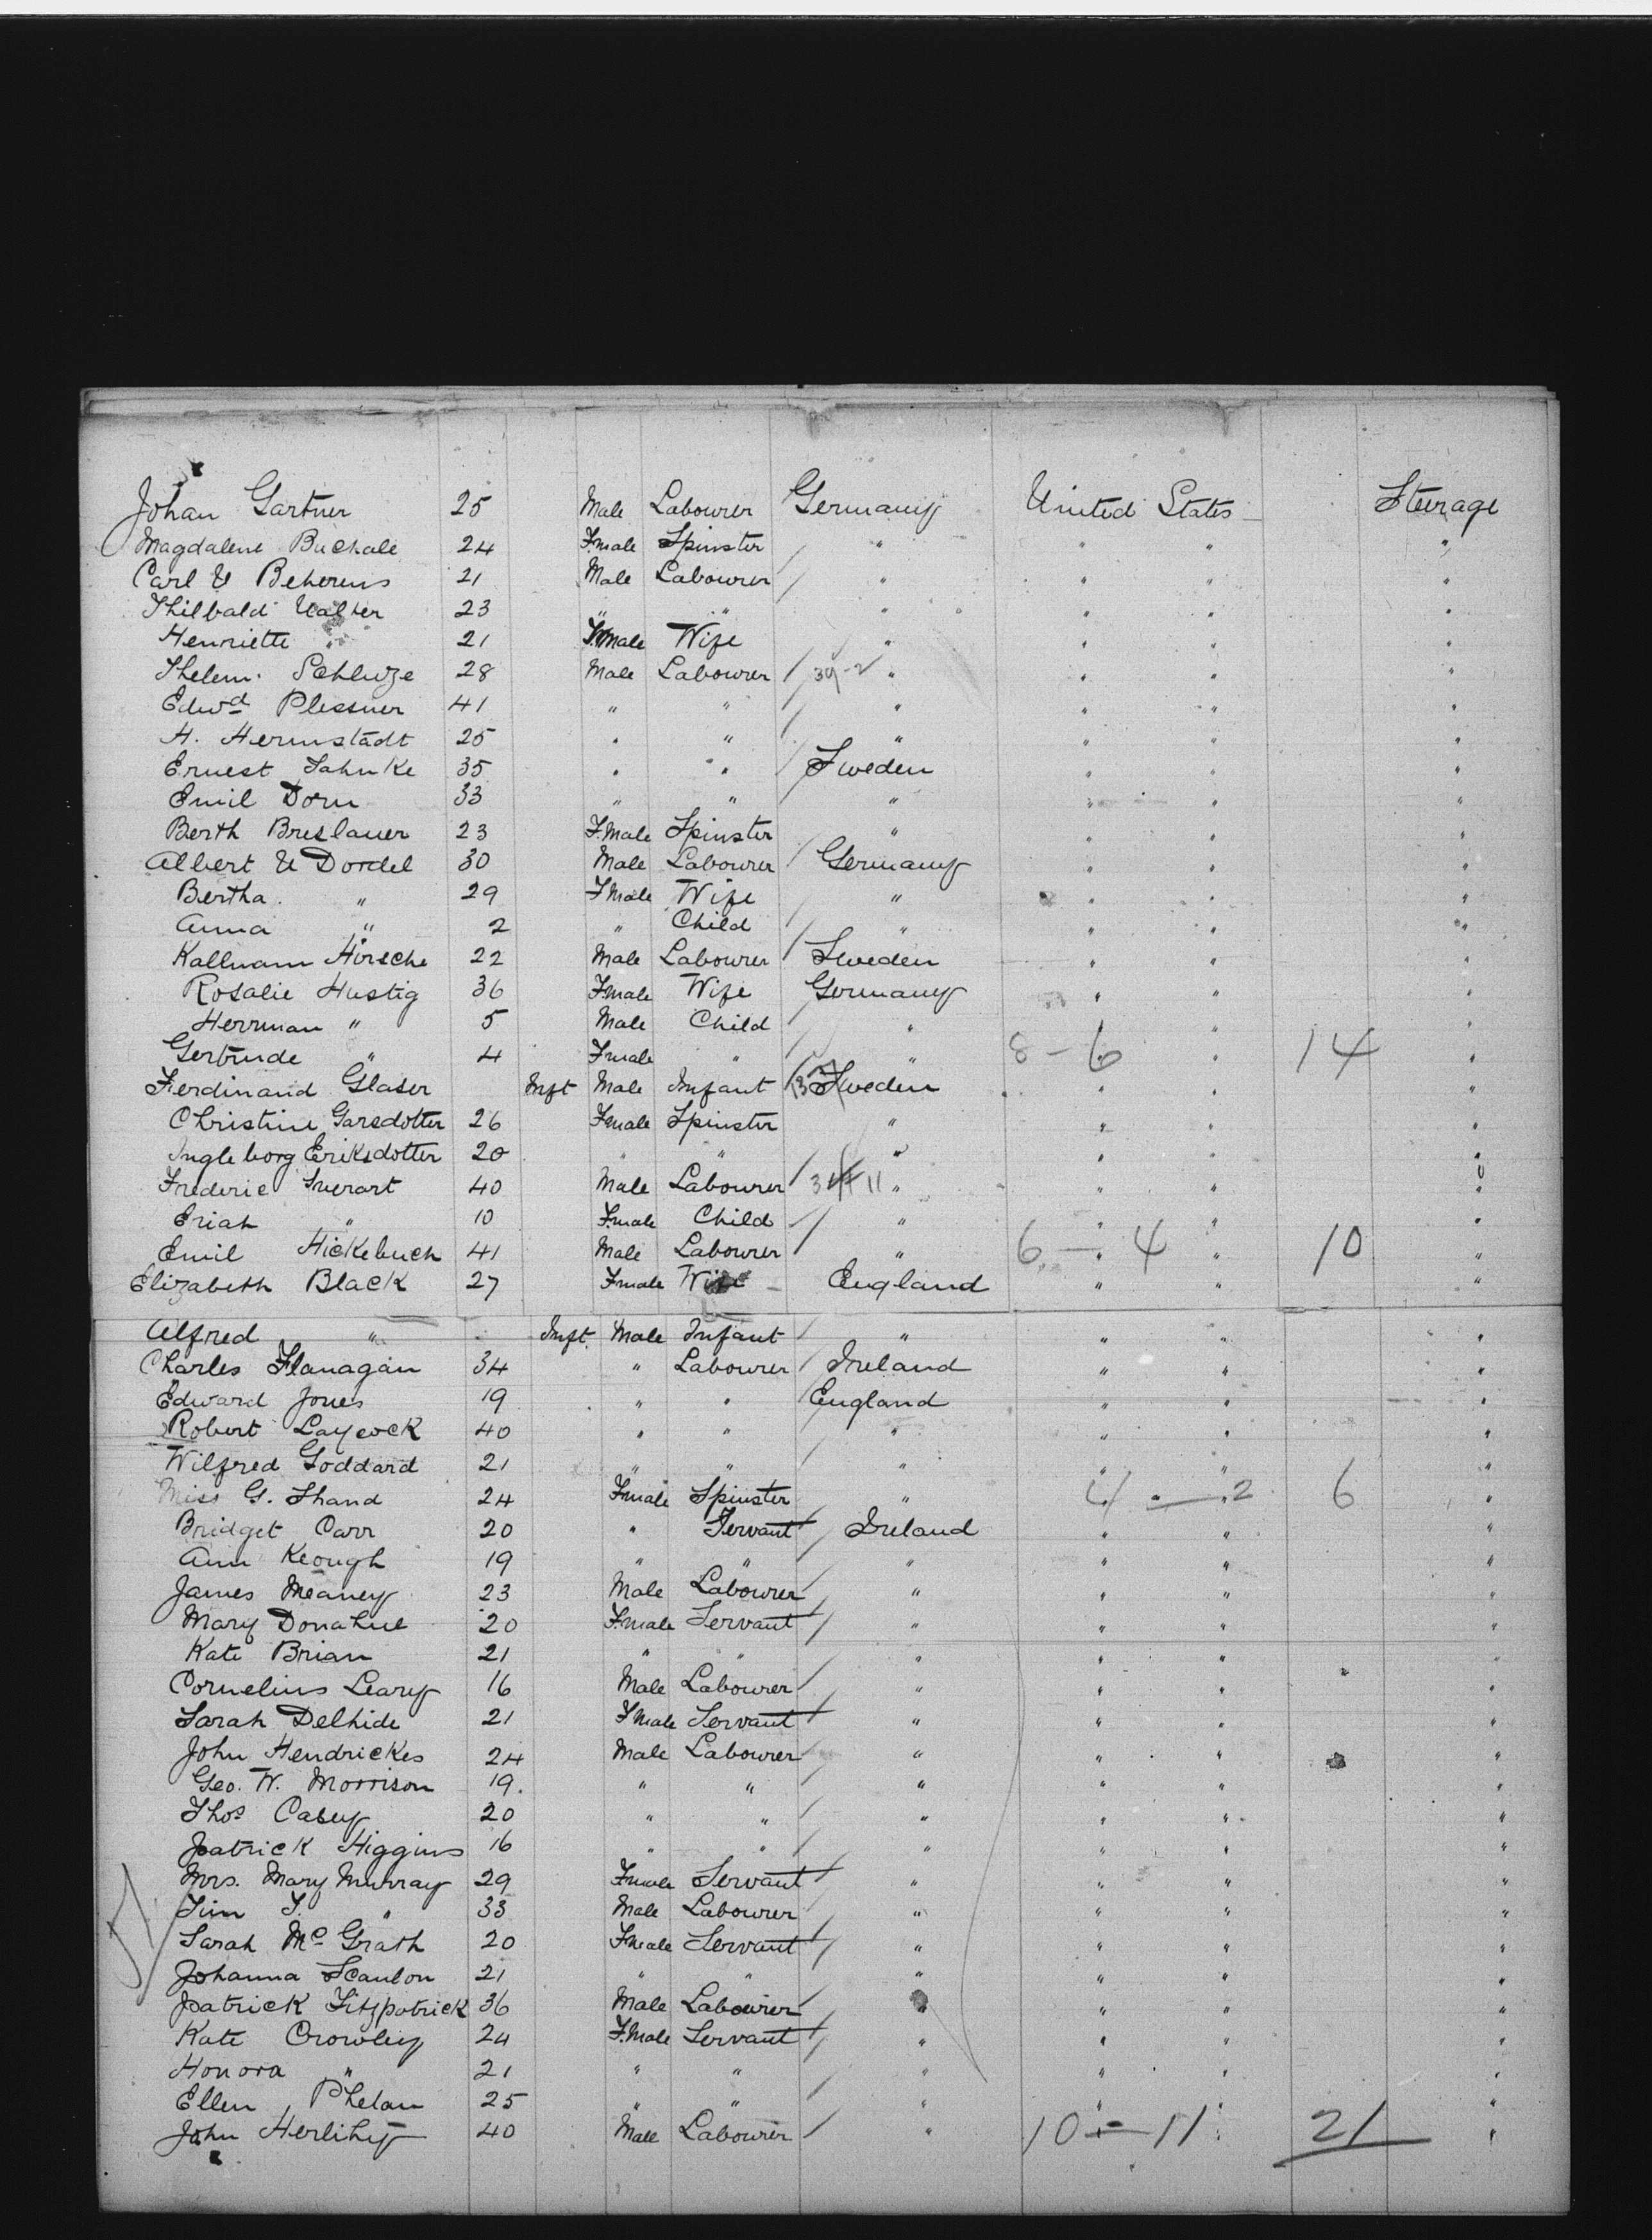 Johan Gartner 25 Male Labourer Germany United States Steerage
Magdalene Buchale 24 Fmale Spinster " " " "
Carl U Beherens 21 Male Labourer " " " "
Thilbald Walter 23 " " " " " "
Henriette " 21 Fmale Wife " " " "
Thelem. Schluze 28 Male Labourer 39-2 " " " "
Edwd Plessner 41 " " " " " "
H. Hermstadt 25 " " " " " "
Ernest Jahnke 35 " " Sweden " " "
Emil Dorn 33 " " " " " "
Berth Breslauer 23 F.Male Spinster " " " "
Albert U Dordel 30 Male Labourer Germany " " "
Bertha " 29 Fmale Wife " " " "
Anna " 2 " Child " " " "
Kallmann Hirsche 22 Male Labourer Sweden " " "
Rosalie Hustig 36 Fmale Wife Germany " " "
Herrman " 5 Male Child " " " "
Gertrude " 4 Fmale " " 8 - 6 " 14 "
Ferdinand Glaser Inft Male Infant Sweden " " "
Christine Garsdotter 26 Fmale Spinster " " " "
Ingleborg Eriksdotter 20 " " " " " "
Frederic Swerart 40 Male Labourer 11 " " " "
Eriah " 10 Fmale Child " " " "
Emil Hickebuch 41 Male Labourer " 6 - 4 " 10 "
Elizabeth Black 27 Fmale Wife England " " "
Alfred " Inft. Male Infant " " " "
Charles Flanagan 34 " Labourer Ireland " " "
Edward Jones 19 " " England " " "
Robert Laycock 40 " " " " " "
Wilfred Goddard 21 " " " " " "
Miss G. Shand 24 Fmale Spinster " 4 - 2 6 "
Bridget Carr 20 " Servant Ireland " " "
Ann Keough 19 " " " " " "
James Meaney 23 Male Labourer " " " "
Mary Donahue 20 Fmale Servant " " " "
Kate Brian 21 " " " " " "
Cornelius Leary 16 Male Labourer " " " "
Sarah Delhide 21 Fmale Servant " " " "
John Hendrickes 24 Male Labourer " " " "
Geo. W. Morrison 19. " " " " " "
Thos Casey 20 " " " " " "
Patrick Higgins 16 " " " " " "
Mrs. Mary Murray 29 Fmale Servant " " " "
Tim T. " 33 Male Labourer " " " "
Sarah Mc Grath 20 Fmale Servant " " " "
Johanna Scanlon 21 " " " " " "
Patrick Fitzpatrick 36 Male Labourer " " " "
Kate Crowley 24 F.Male Servant " " " "
Honora " 21 " " " " " "
Ellen Phelan 25 " " " " " "
John Herlihy 40 Male Labourer " 10 - 11 21 "